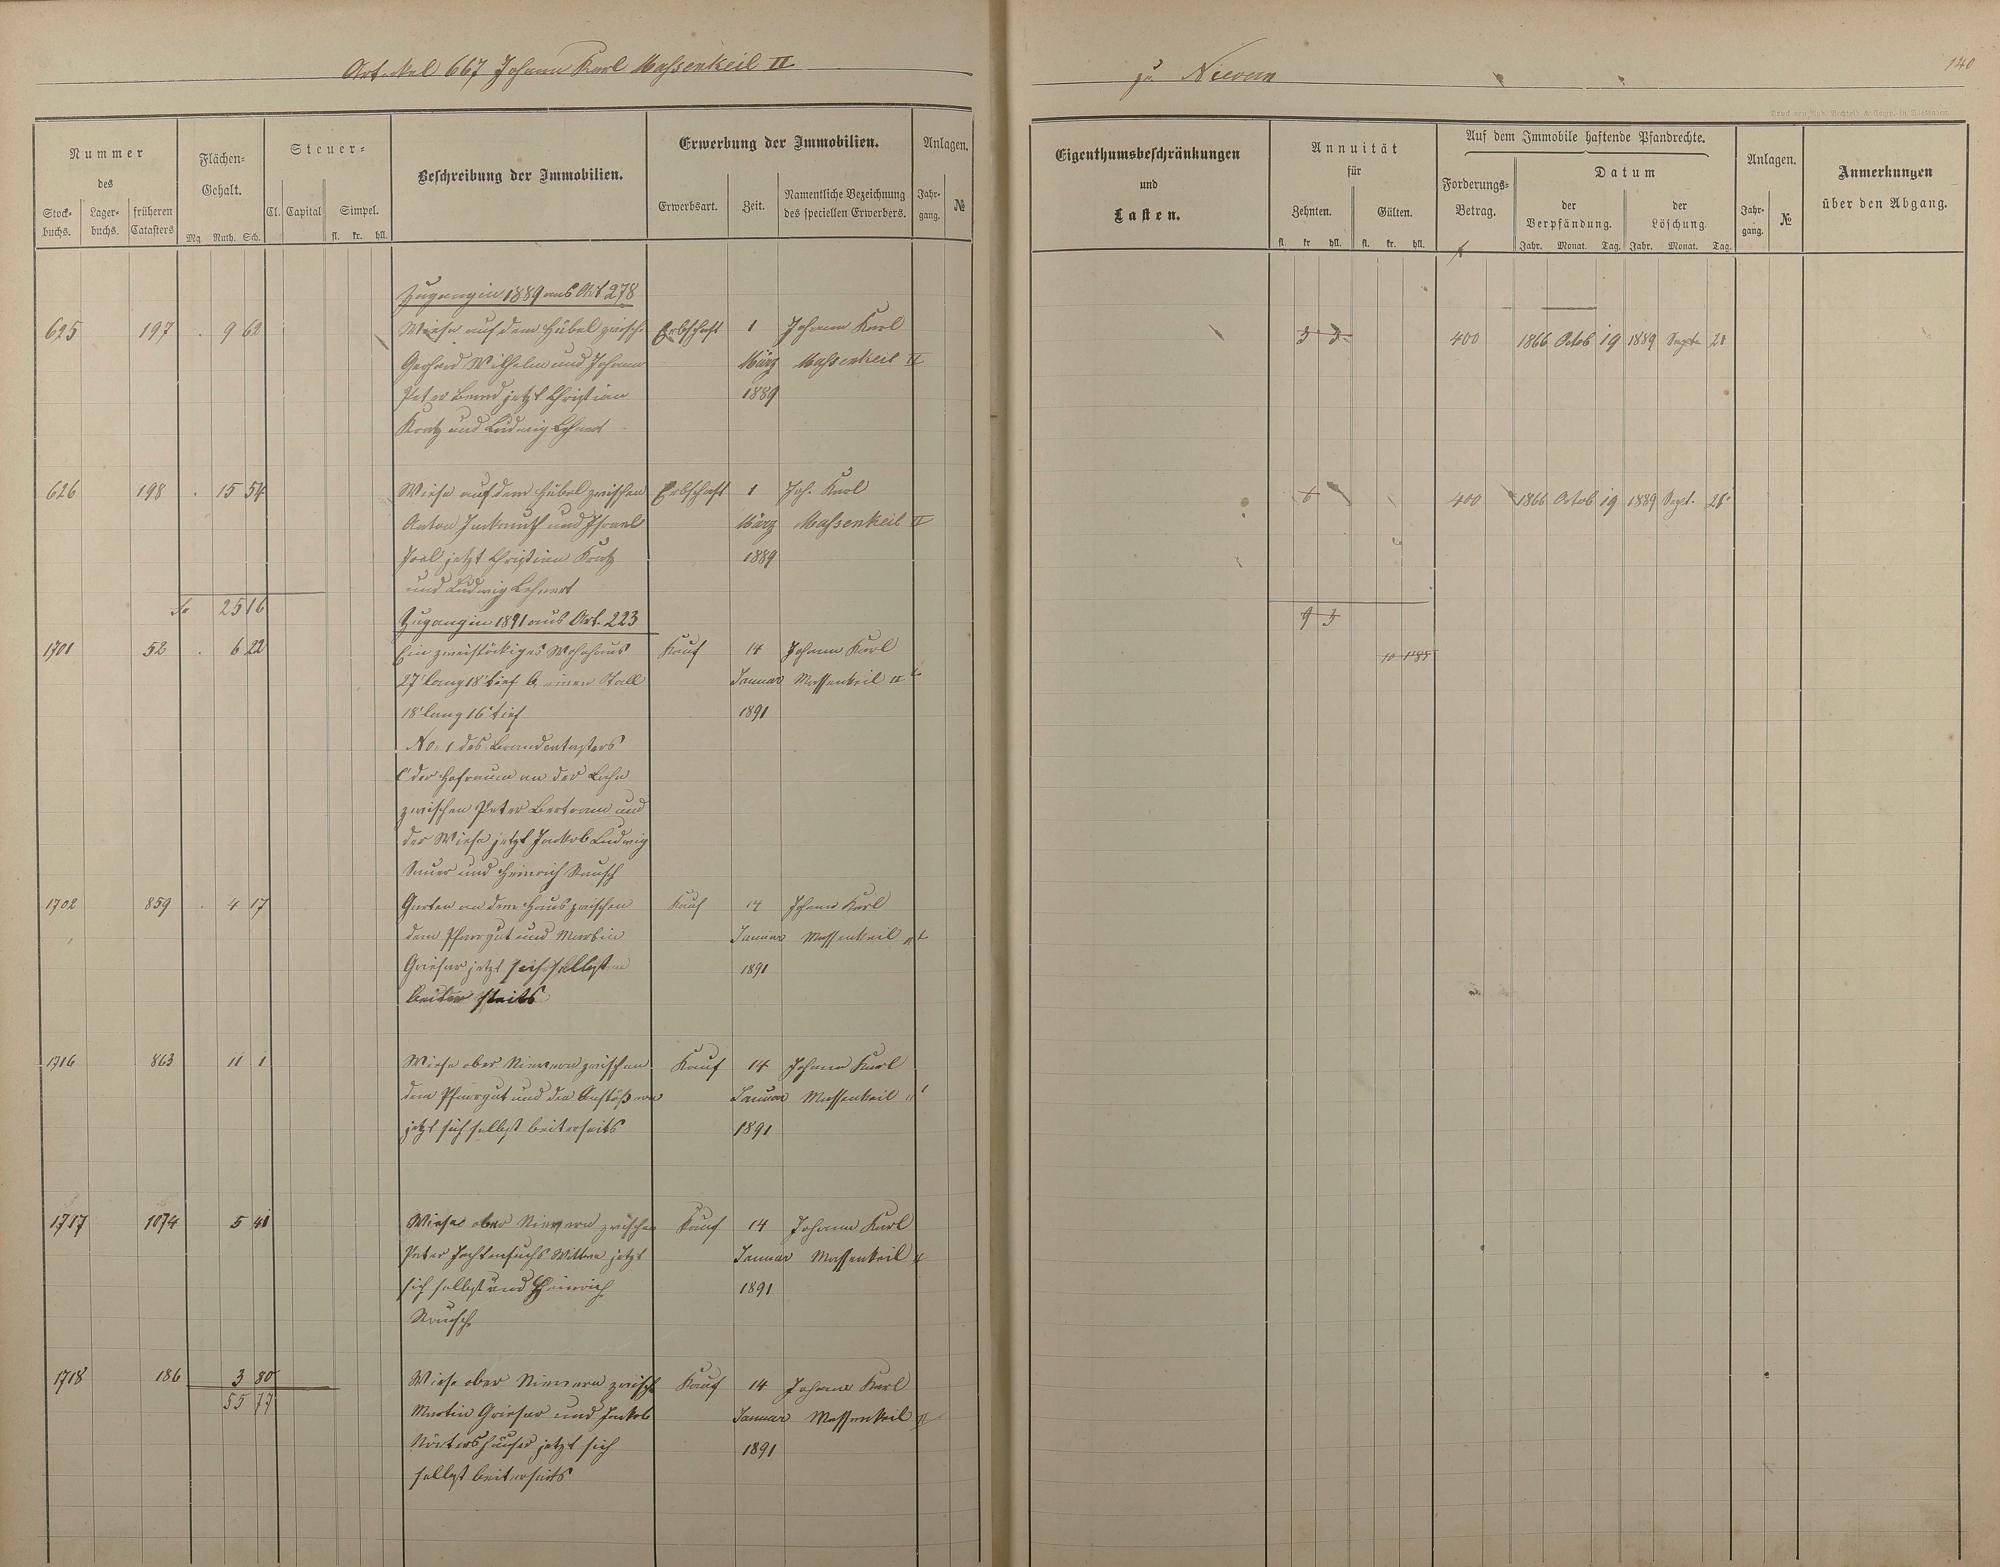 Artikel 667 Johann Karl Massenkeil II
zu Nievern
140
Nummer
des
Stock-
buchs.
Lager-
buchs.
früheren
Catasters
Flächen-
Gehalt.
Mg. Ruth. Sch.
Steuer-
Cl. Capital Simpel.
fl. kr. hll.
Beschreibung der Immobilien.
Erwerbung der Immobilien.
Erwerbsart. Zeit.
Namentliche Bezeichnung
des speciellen Erwerbers.
Anlagen.
Jahr-
gang.
№
Eigenthumsbeschränkungen
und
Lasten.
Annuität
für
Zehnten. Gülten.
fl. kr. hll. fl. kr. hll.
Auf dem Immobile haftende Pfandrechte.
Forderungs-
Betrag.
Datum
der
Verpfändung.
der
Löschung.
Jahr. Monat. Tag. Jahr. Monat. Tag.
Anlagen.
Jahr-
gang.
№
Anmerkungen
über den Abgang.
Zugang in 1889 aus Art 278
625 197 . 9 62 Wiese auf dem Hübel zwisch. Erbschaft 1 Johann Karl 3 3 400 1866 Octob 19 1889 Septe 21
Gerhard Wilhelm und Johann März Massenkeil II
Peter Bernd jetzt Christian 1889
Kratz und Ludwig Lehnert
626 198 . 15 54 Wiese auf dem Hübel zwischen Erbschaft 1 Joh. Karl 6 400 1866 Octob 19 1889 Sept. 21
Anton und Israel März Massenkeil II
Joel jetzt Christian Kratz 1889
und Ludwig Lehnert
25 16 9 3
Zugang in 1891 aus Art. 223
1701 52 . 6 22 Ein zweistöckiges Wohnhaus Kauf 14 Johann Karl
27' lang 18' tief b, einen Stall Januar Massenkeil II
18' lang 16' tief 1891
No. 1 des Brandcatasters
c' der Hofraum an der Lahn
zwischen Peter Bertram und
der Wiese jetzt Jakob Ludwig
Sauer und Heinrich Rausch
1702 859 . 4 17 Garten an dem Haus zwischen Kauf 14 Johann Karl
dem Pfarrgut und Martin Januar Massenkeil II
Grieser jetzt sich selbst 1891
beider seits
1716 863 11 1 Wiese ober Nievern zwischen Kauf 14 Johann Karl
dem Pfarrgut und den Anstößern Januar Massenkeil II
jetzt sich selbst beiterseits 1891
1717 1074 5 41 Wiese ober Nievern zwischen Kauf 14 Johann Karl
Peter Wittwe jetzt Januar Massenkeil II
sich selbst und Heinrich 1891
Rausch
1718 186 3 80 Wiese ober Nievern zwisch Kauf 14 Johann Karl
55 77 Martin Grieser und Jakob Januar Massenkeil II
Nörtershäuser jetzt sich 1891
selbst beiterseits